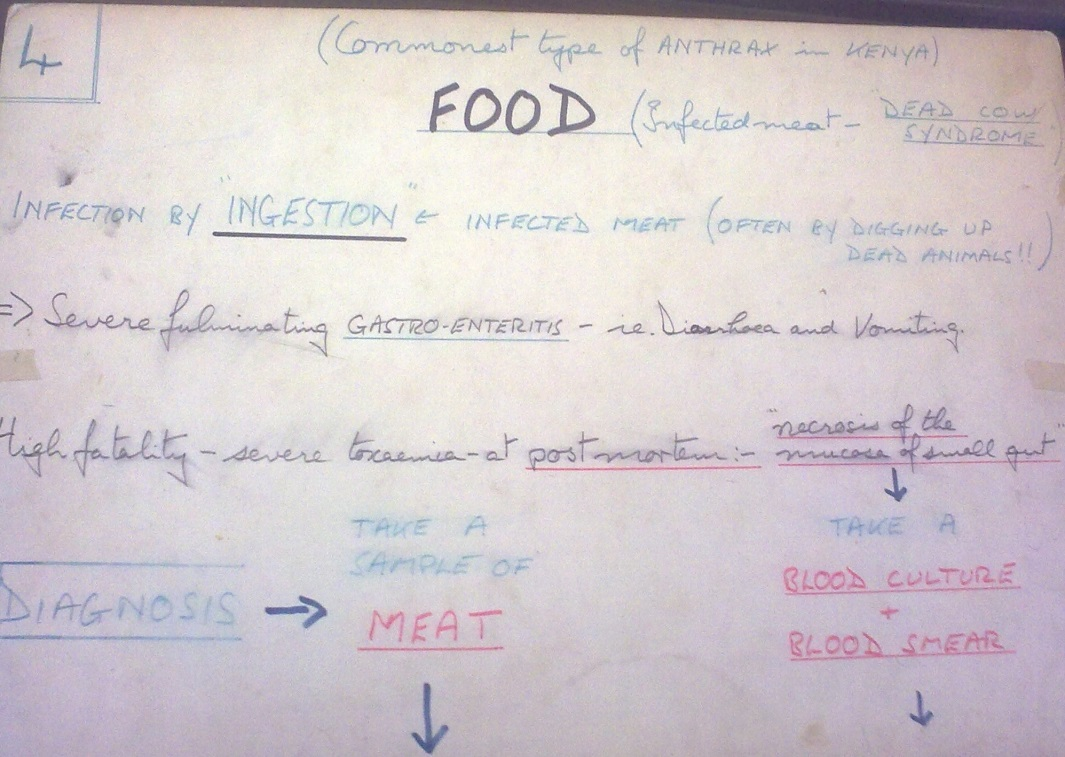 4
(Commonest type of ANTHRAX in KENYA)
FOOD (Infected meat - "DEAD COW
SYNDROME")
INFECTION BY "INGESTION" ← INFECTED MEAT (OFTEN BY DIGGING UP
DEAD ANIMALS!!)
=> Severe fulminating GASTRO-ENTERITIS - ie. Diarrhoea and Vomiting.
High fatality - severe toxaemia - at post mortem :- "necrosis of the
mucosa of small gut"
↓
DIAGNOSIS → TAKE A
SAMPLE OF
MEAT
↓
TAKE A
BLOOD CULTURE
+
BLOOD SMEAR
↓